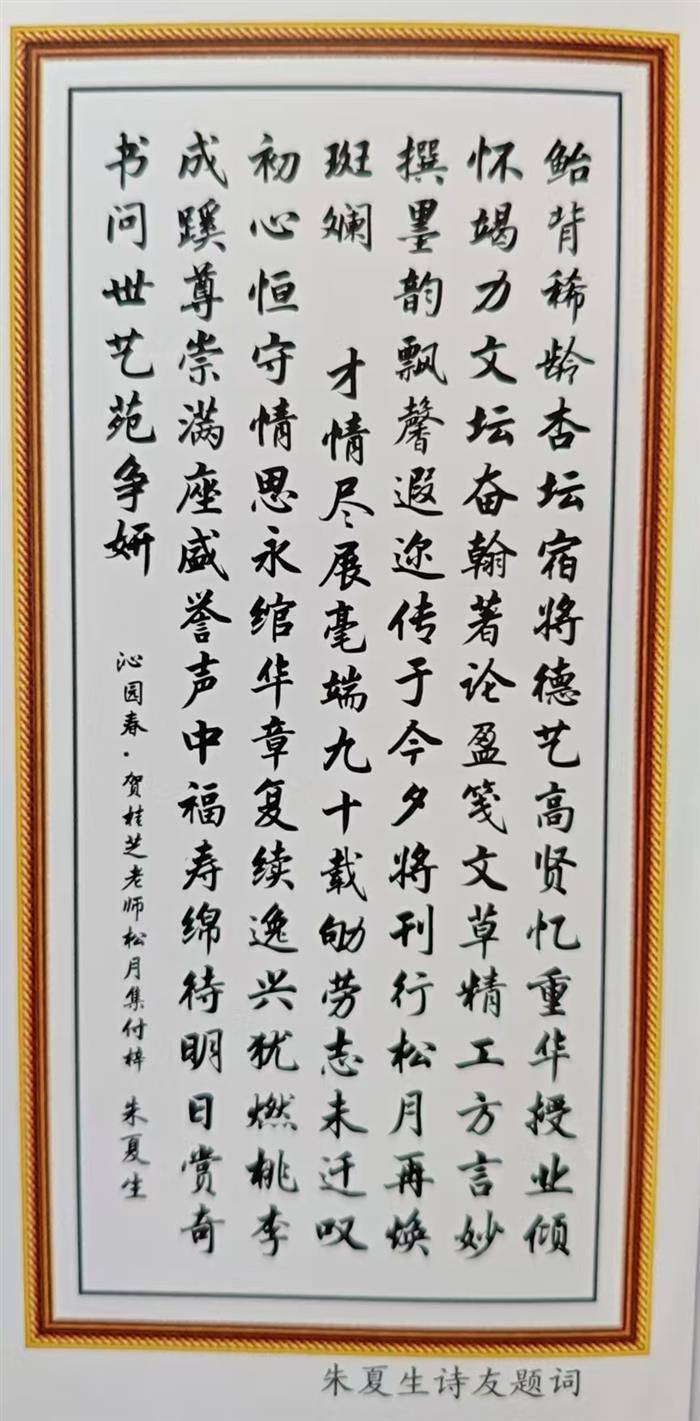 鲐背稀龄杏坛宿将德艺高贤忆重华授业倾
怀竭力文坛奋翰著论盈笺文草精工方言妙
撰墨韵飘馨遐迩传于今夕将刊行松月再焕
斑斓　才情尽展毫端九十载劬劳志未迁叹
初心恒守情思永绾华章复续逸兴犹燃桃李
成蹊尊崇满座盛誉声中福寿绵待明日赏奇
书问世艺苑争妍
沁园春·贺桂芝老师松月集付梓 朱夏生
朱夏生诗友题词